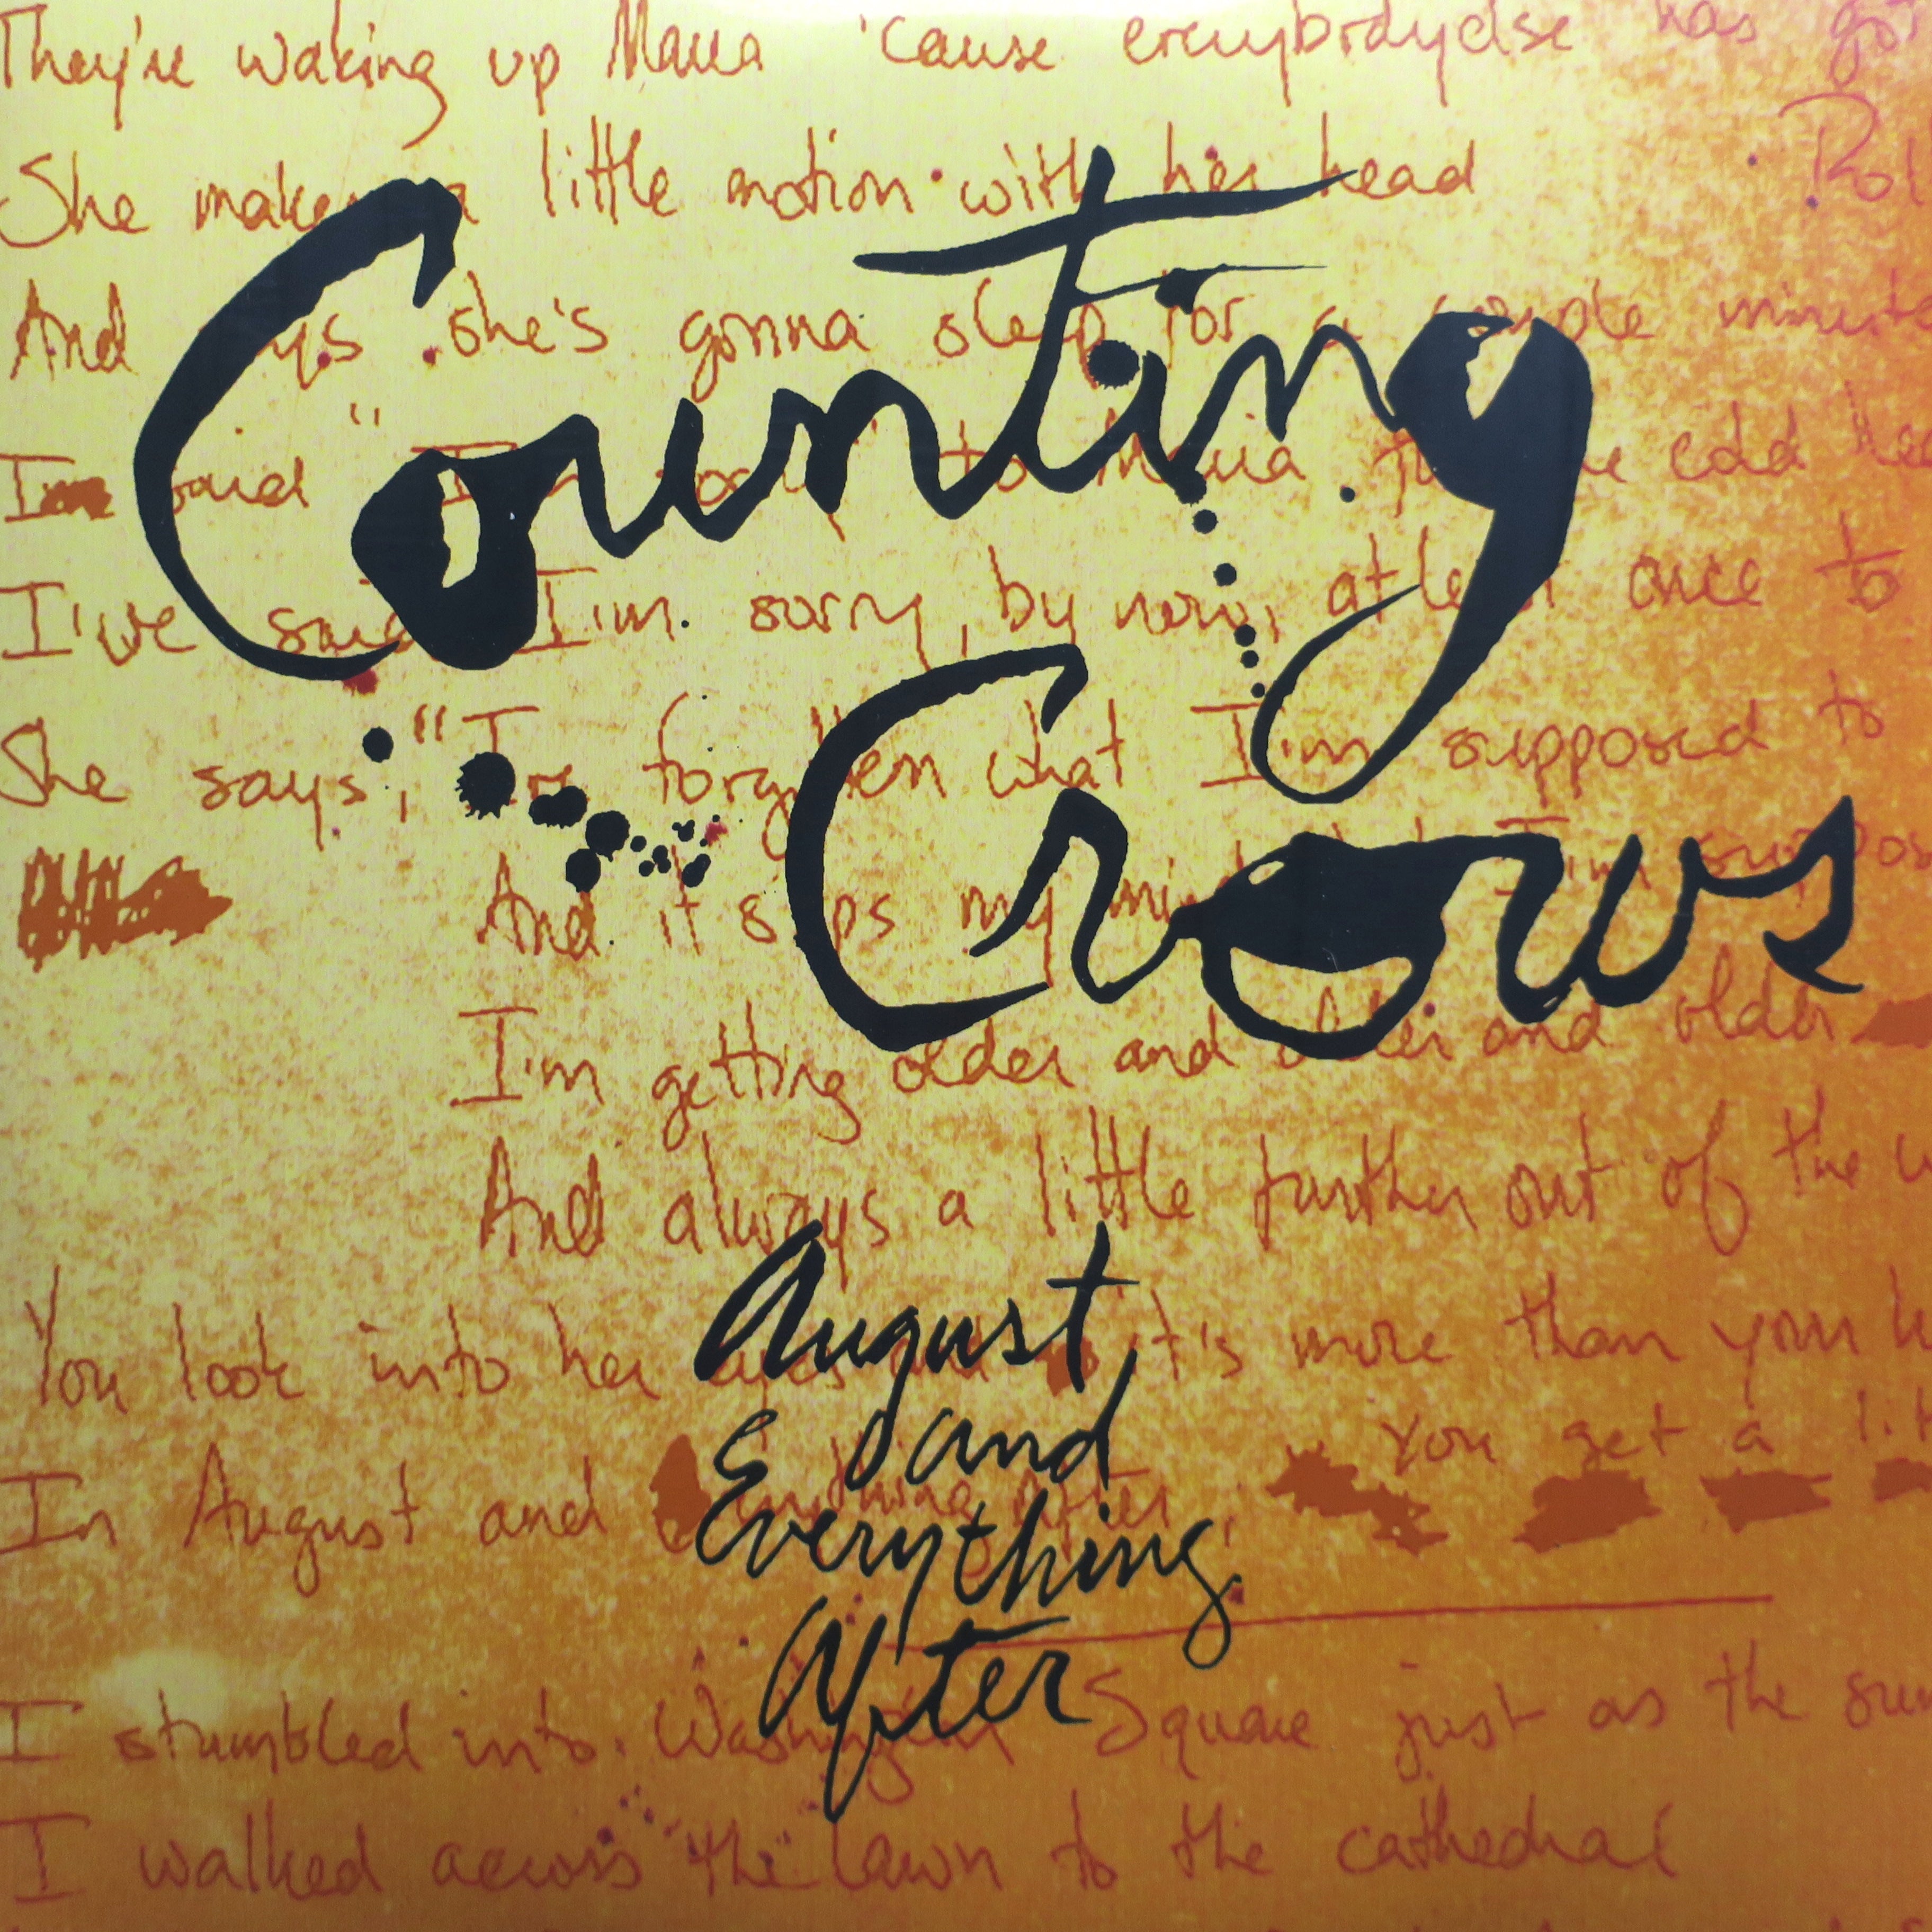 They're waking up Maria 'cause everybodyelse has got
She makes a little motion with her head
Rol
And she's gonna sleep for a couple minut
Counting
I said "I'm to Maria cold
I've said I'm sorry, by now, at least once to
She says, "I've forgotten what I'm supposed to
Crows
And it slips my mind I'm suppos
I'm getting older and older and older
And always a little further out of the w
August
and
Everything
After
You look into her eyes it's more than your h
You get a lit
In August and everything after,
I stumbled into Washington Square just as the sun
I walked across the lawn to the cathedral